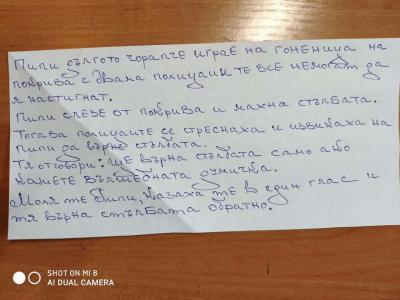 Пипи дългото чорапче играе на гоненица на
покрива с двама полицаи и те все немогат да
я настигнат.
Пипи слезе от покрива и махна стълбата.
Тогава полицаите се стреснаха и извикаха на
Пипи да върне стълбата.
Тя отговори: Ще върна стълбата само ако
кажете вълшебната думичка.
Моля те Пипи, казаха те в един глас и
тя върна стълбата обратно.
SHOT ON MI 8
AI DUAL CAMERA